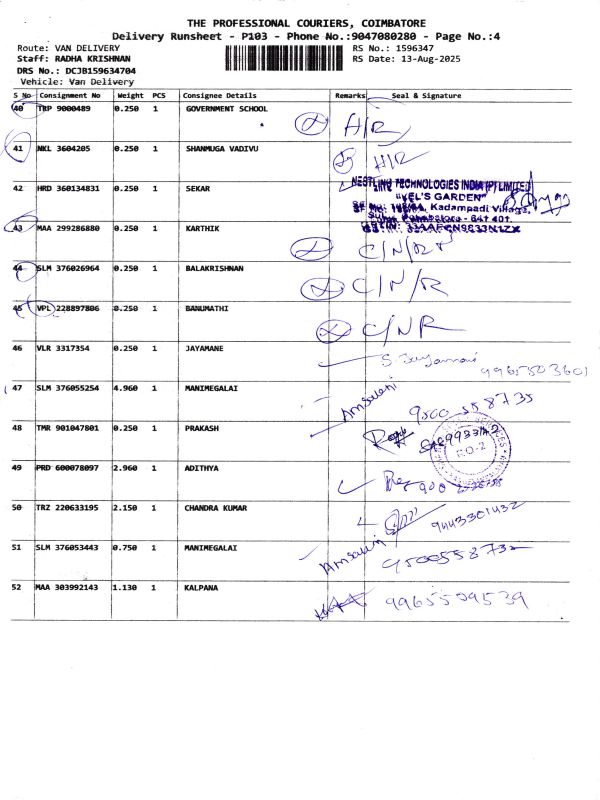 THE PROFESSIONAL COURIERS, COIMBATORE
Delivery Runsheet - P103 - Phone No.:9047080280 - Page No.:4
Route: VAN DELIVERY RS No.: 1596347
Staff: RADHA KRISHNAN RS Date: 13-Aug-2025
DRS No.: DCJB159634704
Vehicle: Van Delivery
S No Consignment No Weight PCS Consignee Details Remarks Seal & Signature
40 TRP 9000489 0.250 1 GOVERNMENT SCHOOL H/R
41 NKL 3604205 0.250 1 SHANMUGA VADIVU H/R
42 HRD 360134831 0.250 1 SEKAR
NESTLING TECHNOLOGIES INDIA (P) LIMITED
"VEL'S GARDEN"
Kadampadi Village,
Coimbatore - 641 401.
43 MAA 299286880 0.250 1 KARTHIK C/N/R
44 SLM 376026964 0.250 1 BALAKRISHNAN C/N/R
45 VPL 228897806 0.250 1 BANUMATHI C/NR
46 VLR 3317354 0.250 1 JAYAMANE
9965503601
47 SLM 376055254 4.960 1 MANIMEGALAI Amsaveni 9500558735
48 TMR 901047801 0.250 1 PRAKASH
R.O-2
49 PRD 600078097 2.960 1 ADITHYA
50 TRZ 220633195 2.150 1 CHANDRA KUMAR 9443301432
51 SLM 376053443 0.750 1 MANIMEGALAI Amsaveni
52 MAA 303992143 1.130 1 KALPANA 9965509539